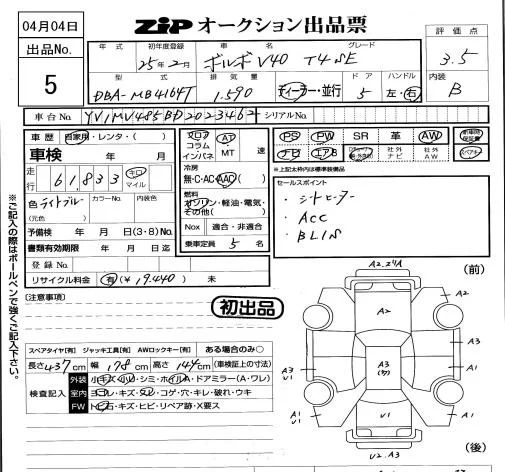 04月04日
ZiP オークション出品票
出品No.
5
年式 初年度登録 車名 グレード
25年2月 ボルボ V40 T4 SE
型式 排気量 ドア ハンドル
DBA-MB4164T 1.590 ディーラー・並行 5 左・右
評価点
3.5
内装
B
車台No. YV1MV485BD2023462 シリアルNo.
車歴 自家用・レンタ・( )
車検 年 月
走行 61,833 キロ マイル
色 ライトブルー カラーNo. 内装色
(元色 )
予備検 年 月 日(3・8)No.
書類有効期限 年 月 日迄
登録No.
リサイクル料金 有(¥19.440) 未
フロア コラム インパネ AT・MT 速
冷房
無・C・AC・AAC( )
燃料
ガソリン・軽油・電気・その他( )
Nox 適合・非適合
乗車定員 5 名
PS PW SR 革 AW 新車時保証書
ナビ エアB 社外ナビ 社外AW スペアキー
※上記太枠内は標準装備品
セールスポイント
・シートヒーター
・ACC
・BLIS
※ご記入の際はボールペンで強くご記入下さい。
[注意事項]
初出品
スペアタイヤ[有] ジャッキ工具[有] AWロックキー[有] ある場合のみ○
長さ437cm 幅178cm 高さ144cm (車検証上の寸法)
検査記入
外装 小キズ・小凹・シミ・ホイルA・ドアミラー(A・ワレ)
室内 ヨゴレ・キズ・スレ・コゲ・穴・キレ・破れ・ウキ
FW トビ石・キズ・ヒビ・リペア跡・X要ス
(前)
A2
A2
A3
A3
V1
A3
A1
A1
V1
V1
V2.A3
(後)